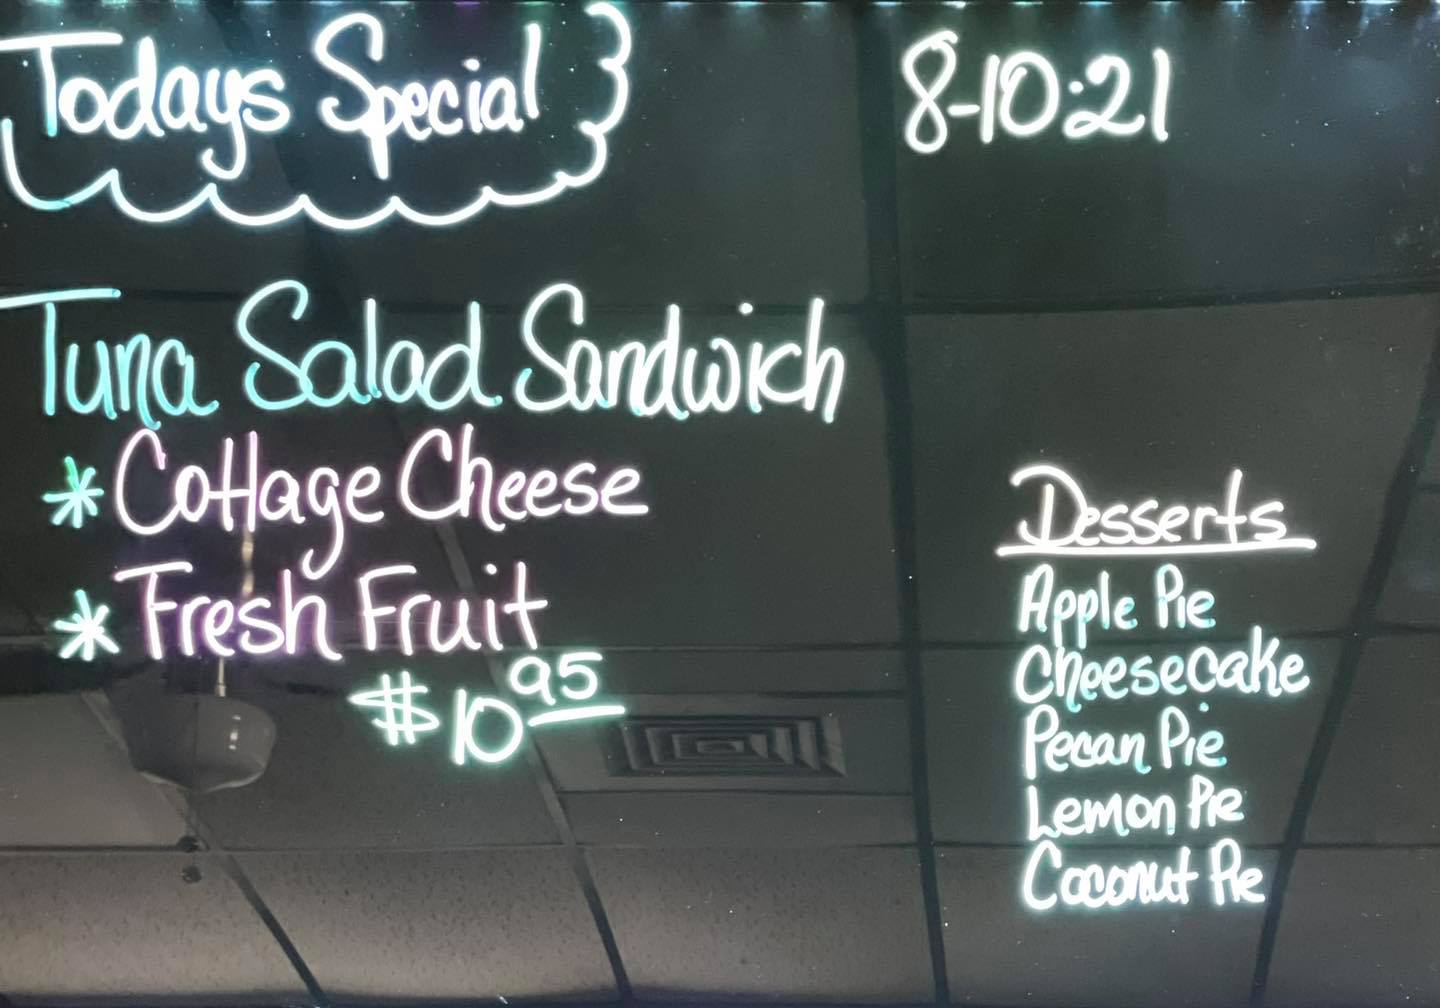 Todays Special
8-10:21
Tuna Salad Sandwich
* Cottage Cheese
* Fresh Fruit
$10 95
Desserts
Apple Pie
Cheesecake
Pecan Pie
Lemon Pie
Coconut Pie